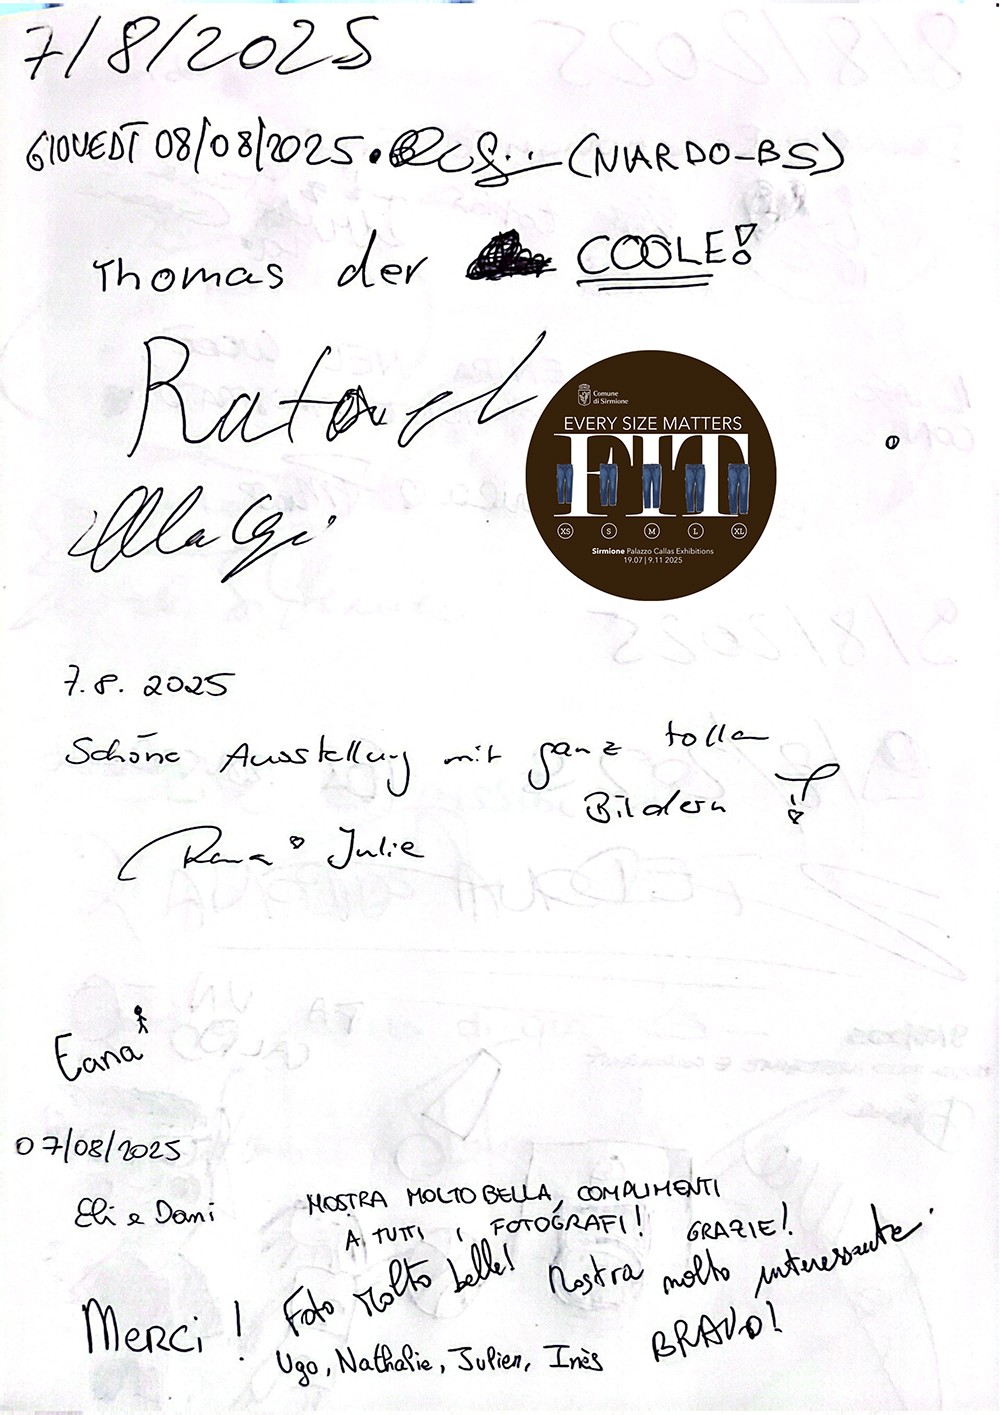 7/8/2025
GIOVEDÌ 08/08/2025. (NIARDO-BS)
Thomas der COOLE!
Comune
di Sirmione
EVERY SIZE MATTERS
FIT
XS S M L XL
Sirmione Palazzo Callas Exhibitions
19.07 | 9.11 2025
7.8. 2025
Schöne Ausstellung mit ganz tollen
Bildern
Julie
Eana
07/08/2025
Eli e Dani
MOSTRA MOLTO BELLA, COMPLIMENTI
A TUTTI I FOTOGRAFI! GRAZIE!
Foto molto belle! Mostra molto interessante.
Merci! BRAVO!
Ugo, Nathalie, Julien, Inès